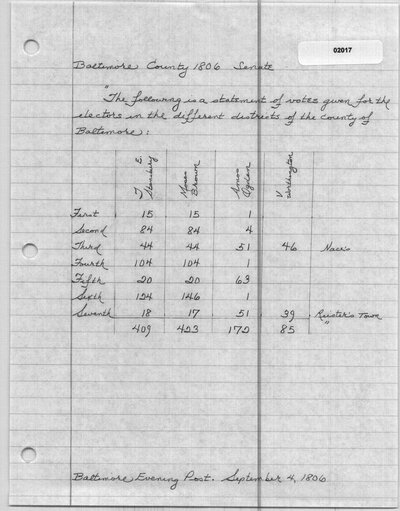 02017
Baltimore County 1806 Senate
"The following is a statement of votes given for the
electors in the different districts of the county of
Baltimore:
T. E. Stansbury Moses Brown Amos Ogden V Worthington
First 15 15 1
Second 84 84 4
Third 44 44 51 46
Fourth 104 104 1
Fifth 20 20 63
Sixth 124 146 1
Seventh 18 17 51 39 Reister's Town
409 423 172 85 "
Baltimore Evening Post. September 4, 1806